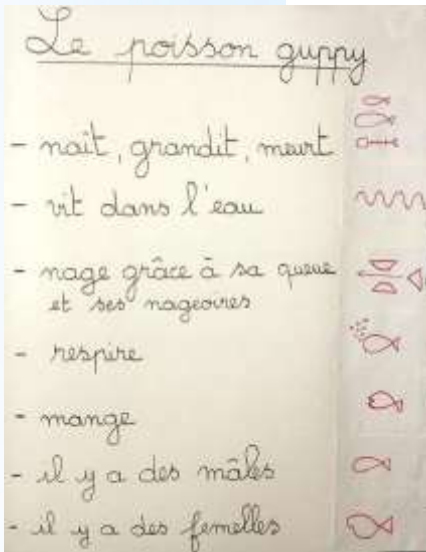 Le poisson guppy
- naît, grandit, meurt
- vit dans l'eau
- nage grâce à sa queue
et ses nageoires
- respire
- mange
- il y a des mâles
- il y a des femelles